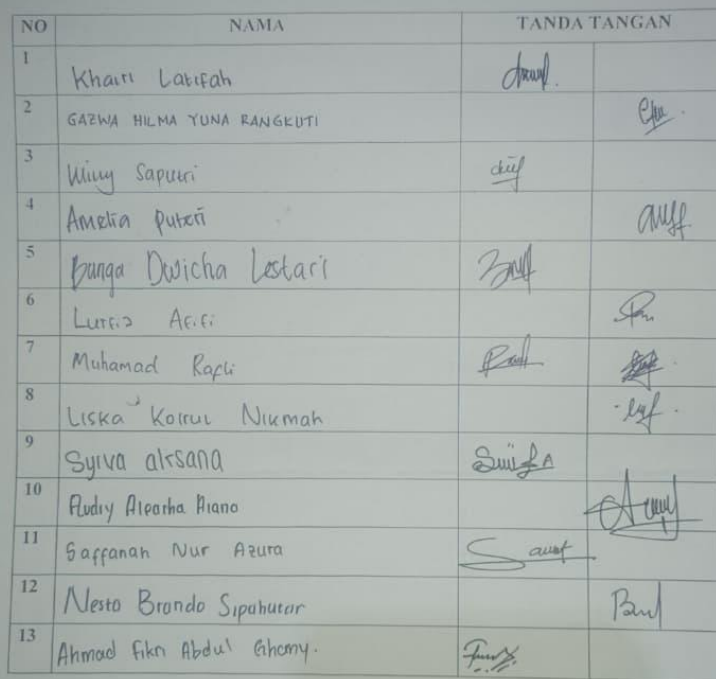 NO NAMA TANDA TANGAN
1 Khairi Latifah
2 GAZWA HILMA YUNA RANGKUTI
3 Winy Saputri
4 Amelia Puteri
5 Bunga Dwicha Lestari
6 Lutfia Afifi
7 Muhamad Rafli
8 Liska Koirul Nikmah
9 Syiva alrsana
10 Audiy Alearha Aiano
11 Saffanah Nur Azura
12 Nesto Brondo Sipahutar
13 Ahmad Fikri Abdul Ghomy.